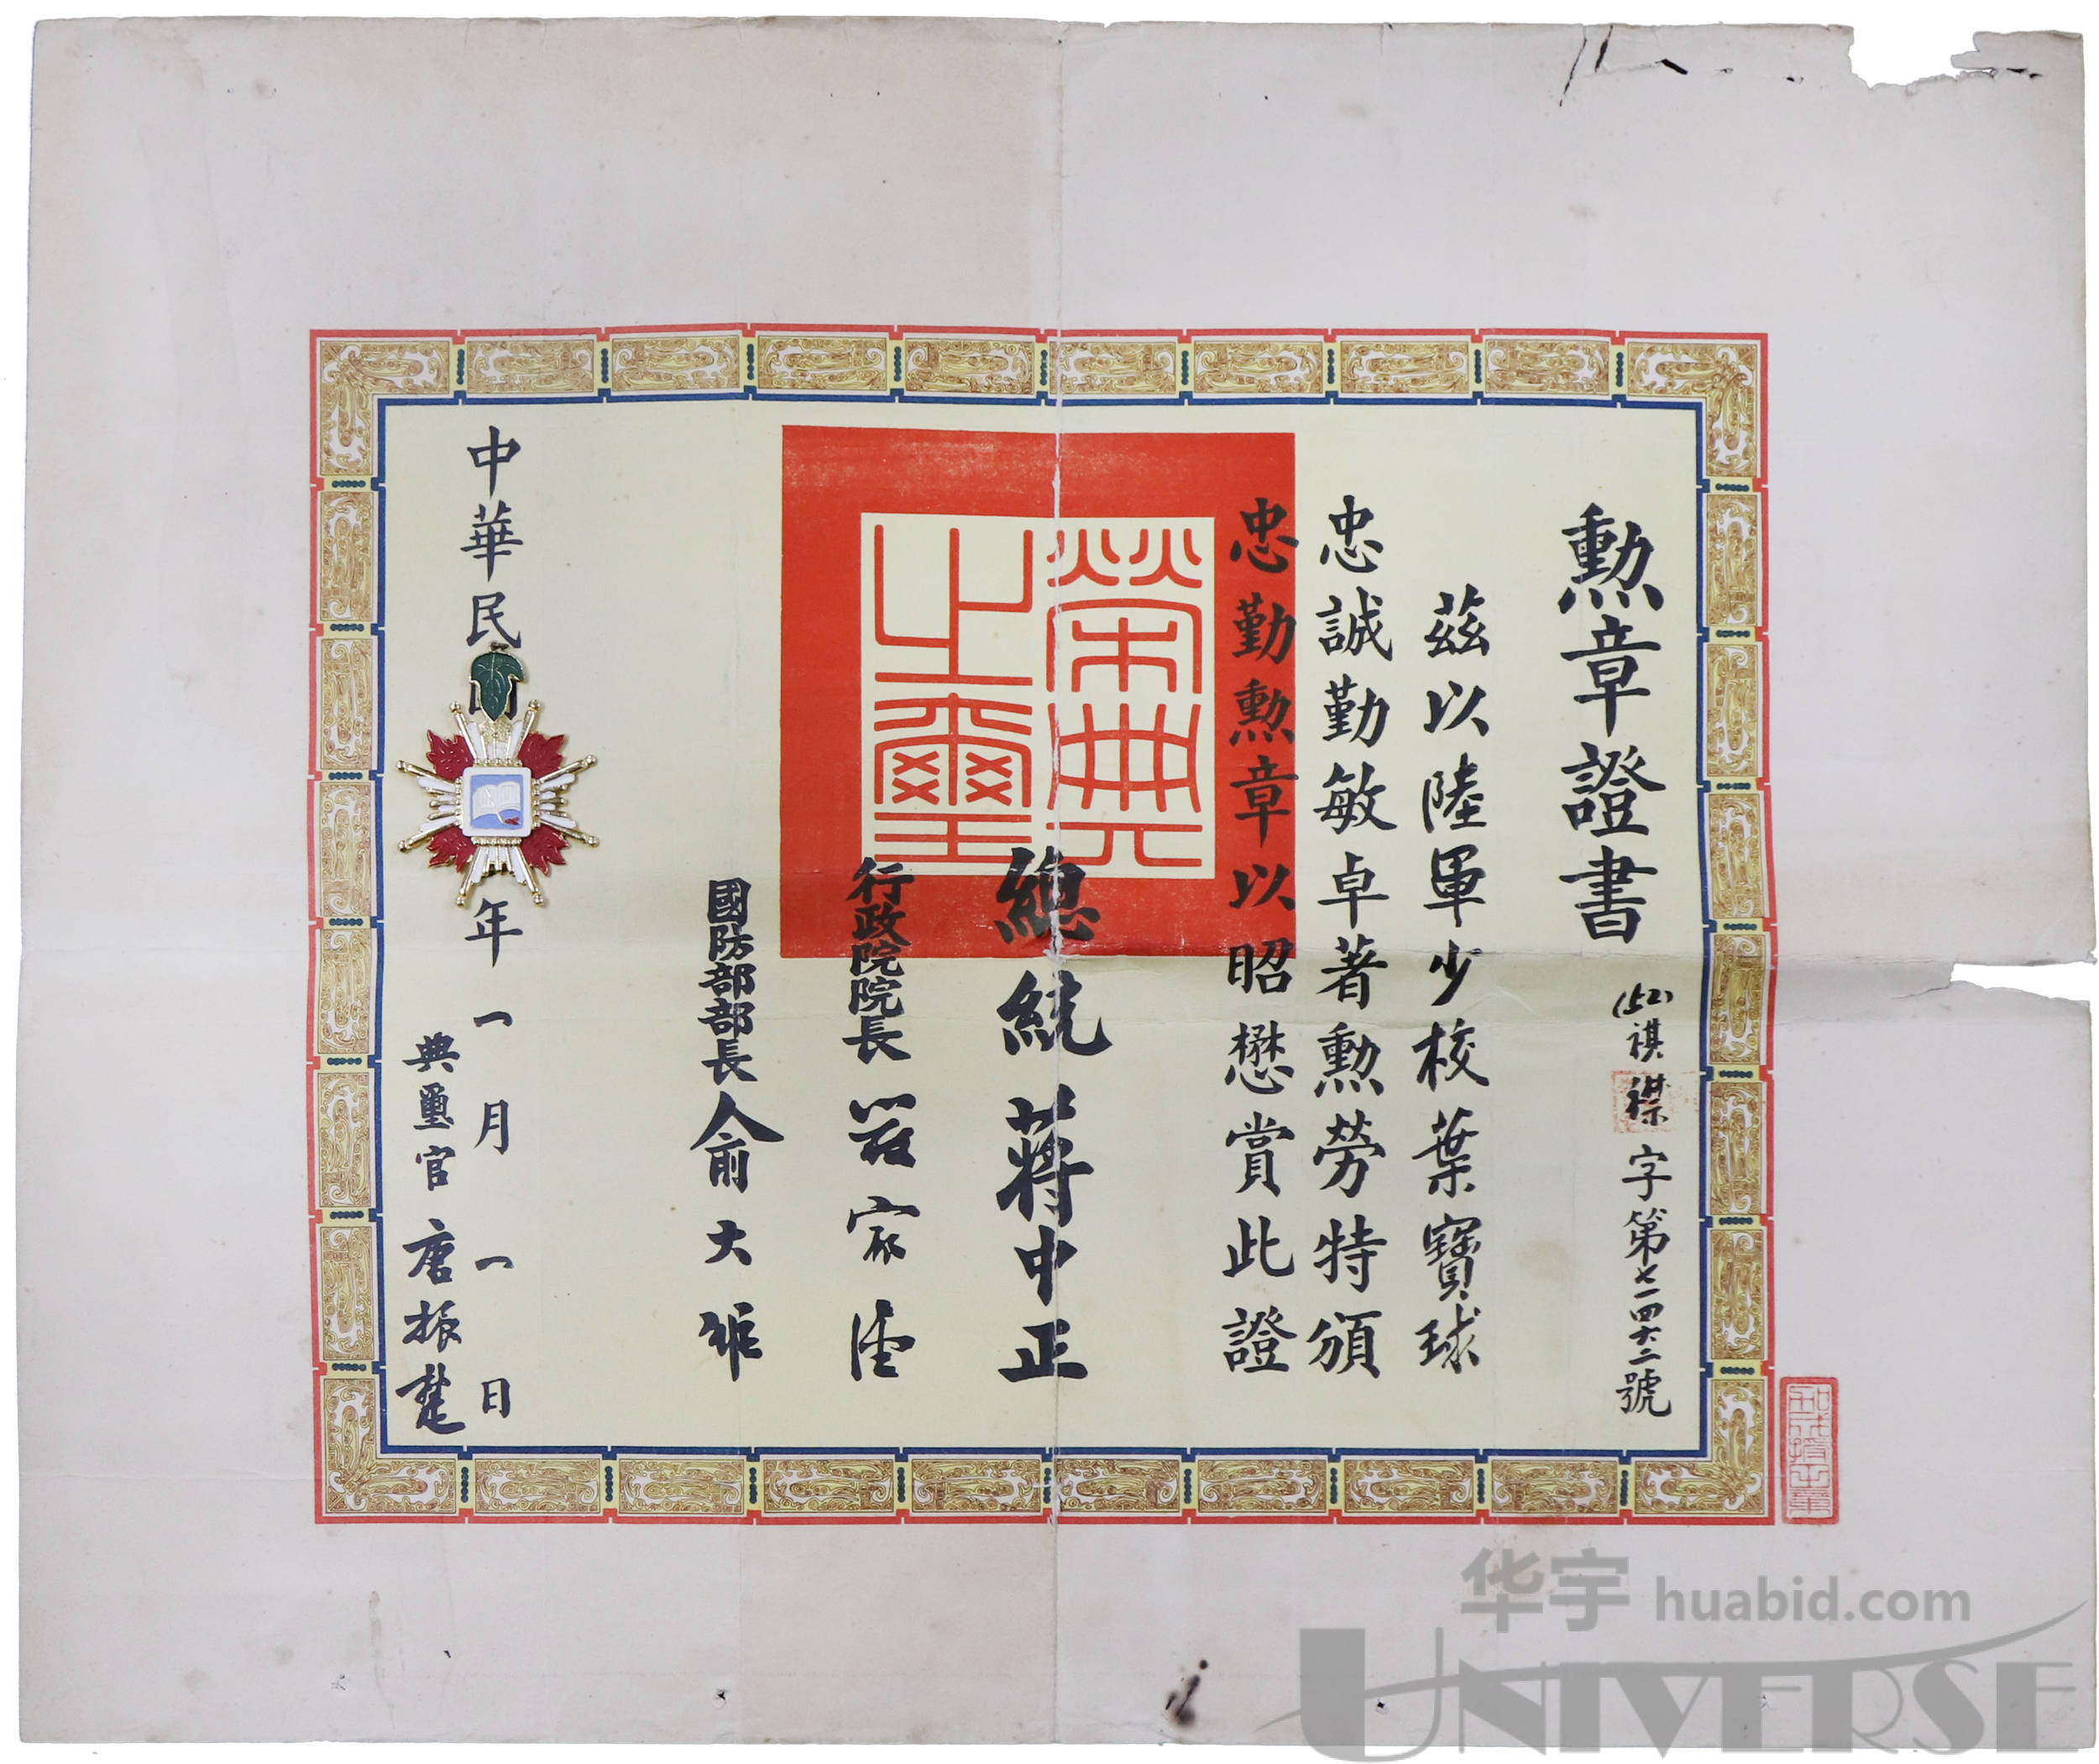 勳章證書
(52)祺襟字第七一四六二號
茲以陸軍少校葉寶球
忠誠勤敏卓著勳勞特頒
忠勤勳章以昭懋賞此證
榮典之璽
總統蔣中正
行政院院長嚴家淦
國防部部長俞大維
中華民
年一月一日
典璽官唐振楚
华宇 huabid.com
UNIVERSE